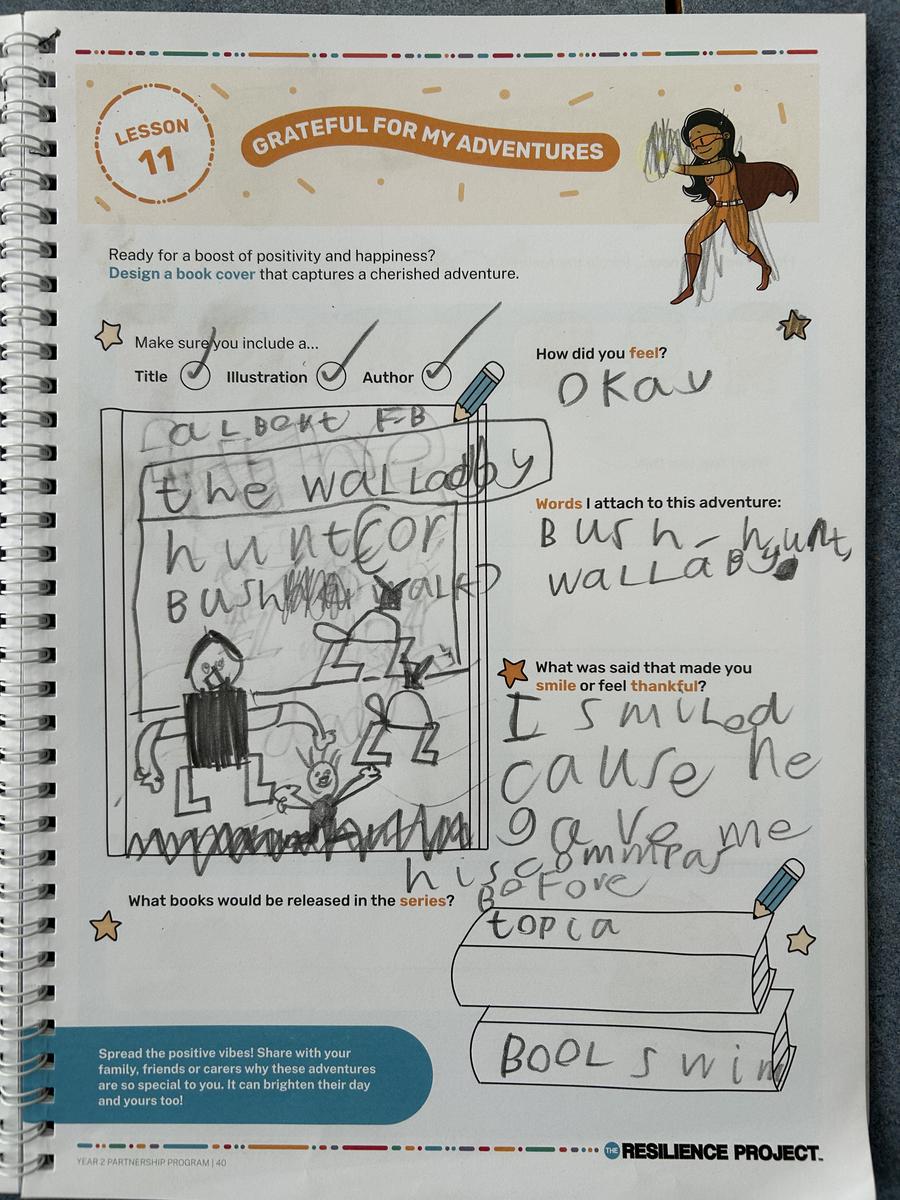 LESSON
11
GRATEFUL FOR MY ADVENTURES
Ready for a boost of positivity and happiness?
Design a book cover that captures a cherished adventure.
Make sure you include a...
Title Illustration Author
aLBert F-B
the waLLaby
hunt (or
BUsh waLk)
How did you feel?
Okay
Words I attach to this adventure:
BUsh - hunt,
waLLaBy.
What was said that made you
smile or feel thankful?
I smiLed
cause he
gave me
his
Before
What books would be released in the series?
topia
BOOL swim
Spread the positive vibes! Share with your
family, friends or carers why these adventures
are so special to you. It can brighten their day
and yours too!
YEAR 2 PARTNERSHIP PROGRAM | 40
THE RESILIENCE PROJECT.